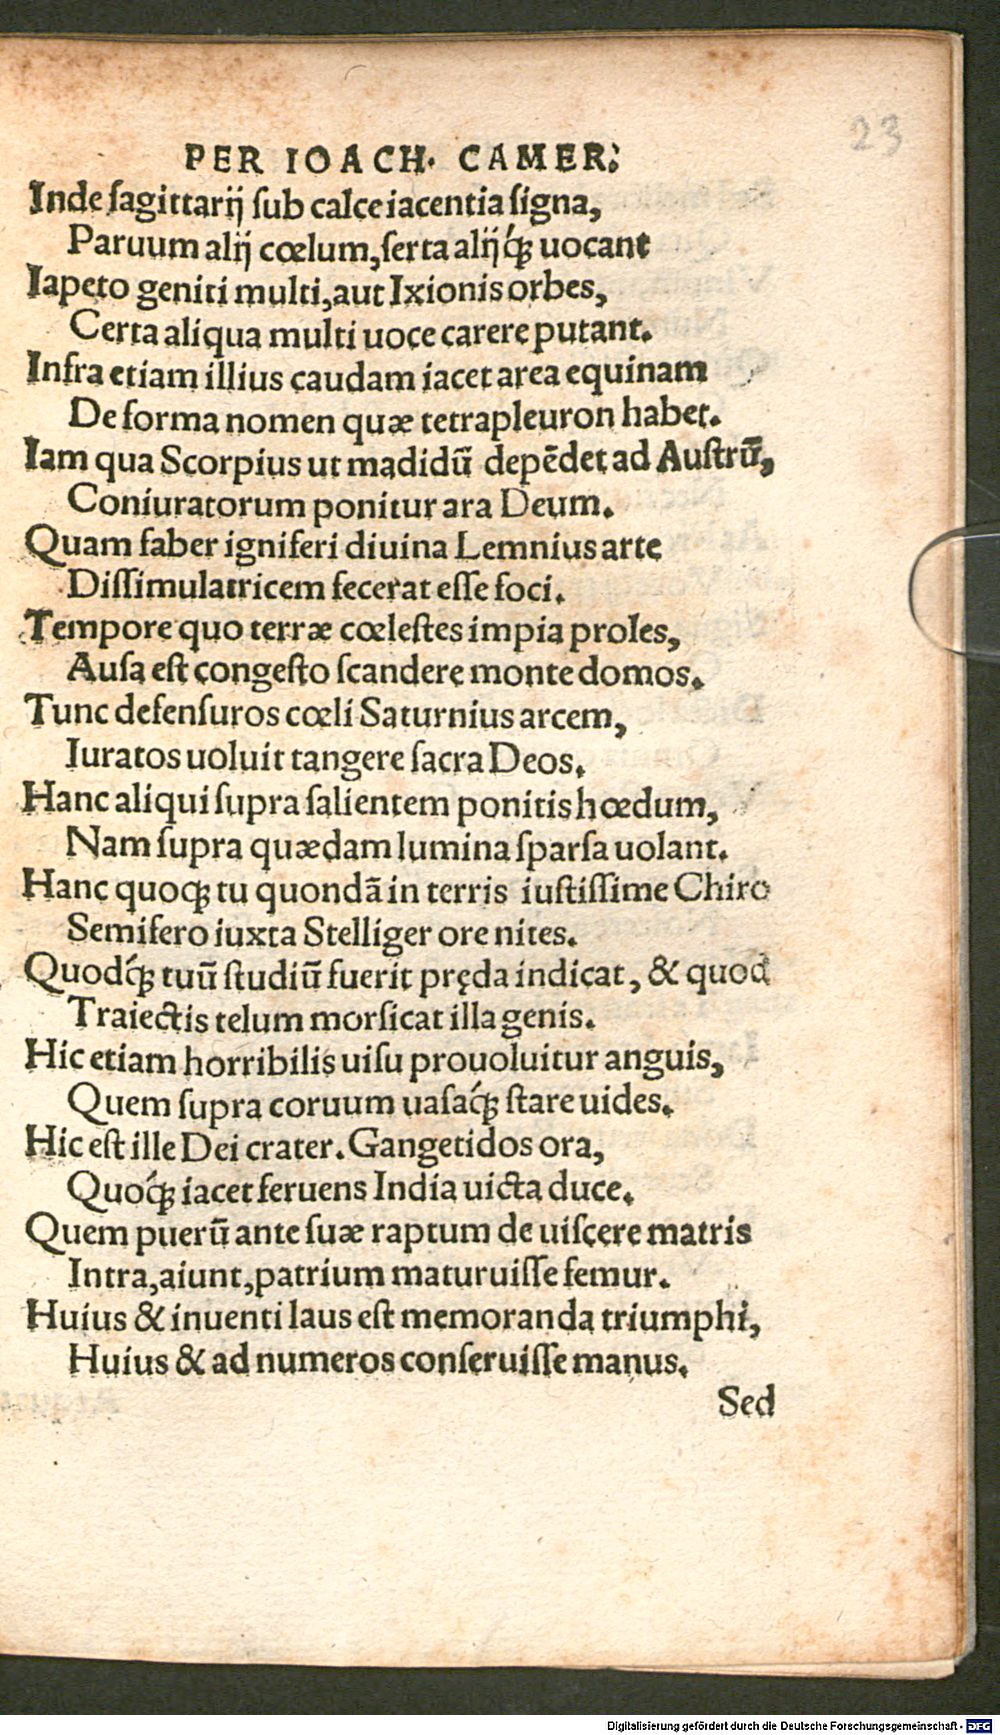 23
PER IOACH. CAMER.
Inde ſagittarij ſub calce iacentia ſigna,
Paruum alij cœlum, ſerta alijq́ꝫ uocant
Iapeto geniti multi, aut Ixionis orbes,
Certa aliqua multi uoce carere putant.
Infra etiam illius caudam iacet area equinam
De forma nomen quæ tetrapleuron habet.
Iam qua Scorpius ut madidū depēdet ad Auſtrū,
Coniuratorum ponitur ara Deum.
Quam faber igniferi diuina Lemnius arte
Diſſimulatricem fecerat eſſe foci.
Tempore quo terræ cœleſtes impia proles,
Auſa eſt congeſto ſcandere monte domos.
Tunc defenſuros cœli Saturnius arcem,
Iuratos uoluit tangere ſacra Deos.
Hanc aliqui ſupra ſalientem ponitis hœdum,
Nam ſupra quædam lumina ſparſa uolant.
Hanc quoqꝫ tu quondā in terris iuſtiſſime Chiro
Semifero iuxta Stelliger ore nites.
Quodq́ꝫ tuū ſtudiū fuerit pręda indicat, & quod
Traiectis telum morſicat illa genis.
Hic etiam horribilis uiſu prouoluitur anguis,
Quem ſupra coruum uaſaq́ꝫ ſtare uides.
Hic eſt ille Dei crater. Gangetidos ora,
Quoq́ꝫ iacet feruens India uicta duce.
Quem puerū ante ſuæ raptum de uiſcere matris
Intra, aiunt, patrium maturuiſſe femur.
Huius & inuenti laus eſt memoranda triumphi,
Huius & ad numeros conſeruiſſe manus.
Sed
Digitalisierung gefördert durch die Deutsche Forschungsgemeinschaft - DFG